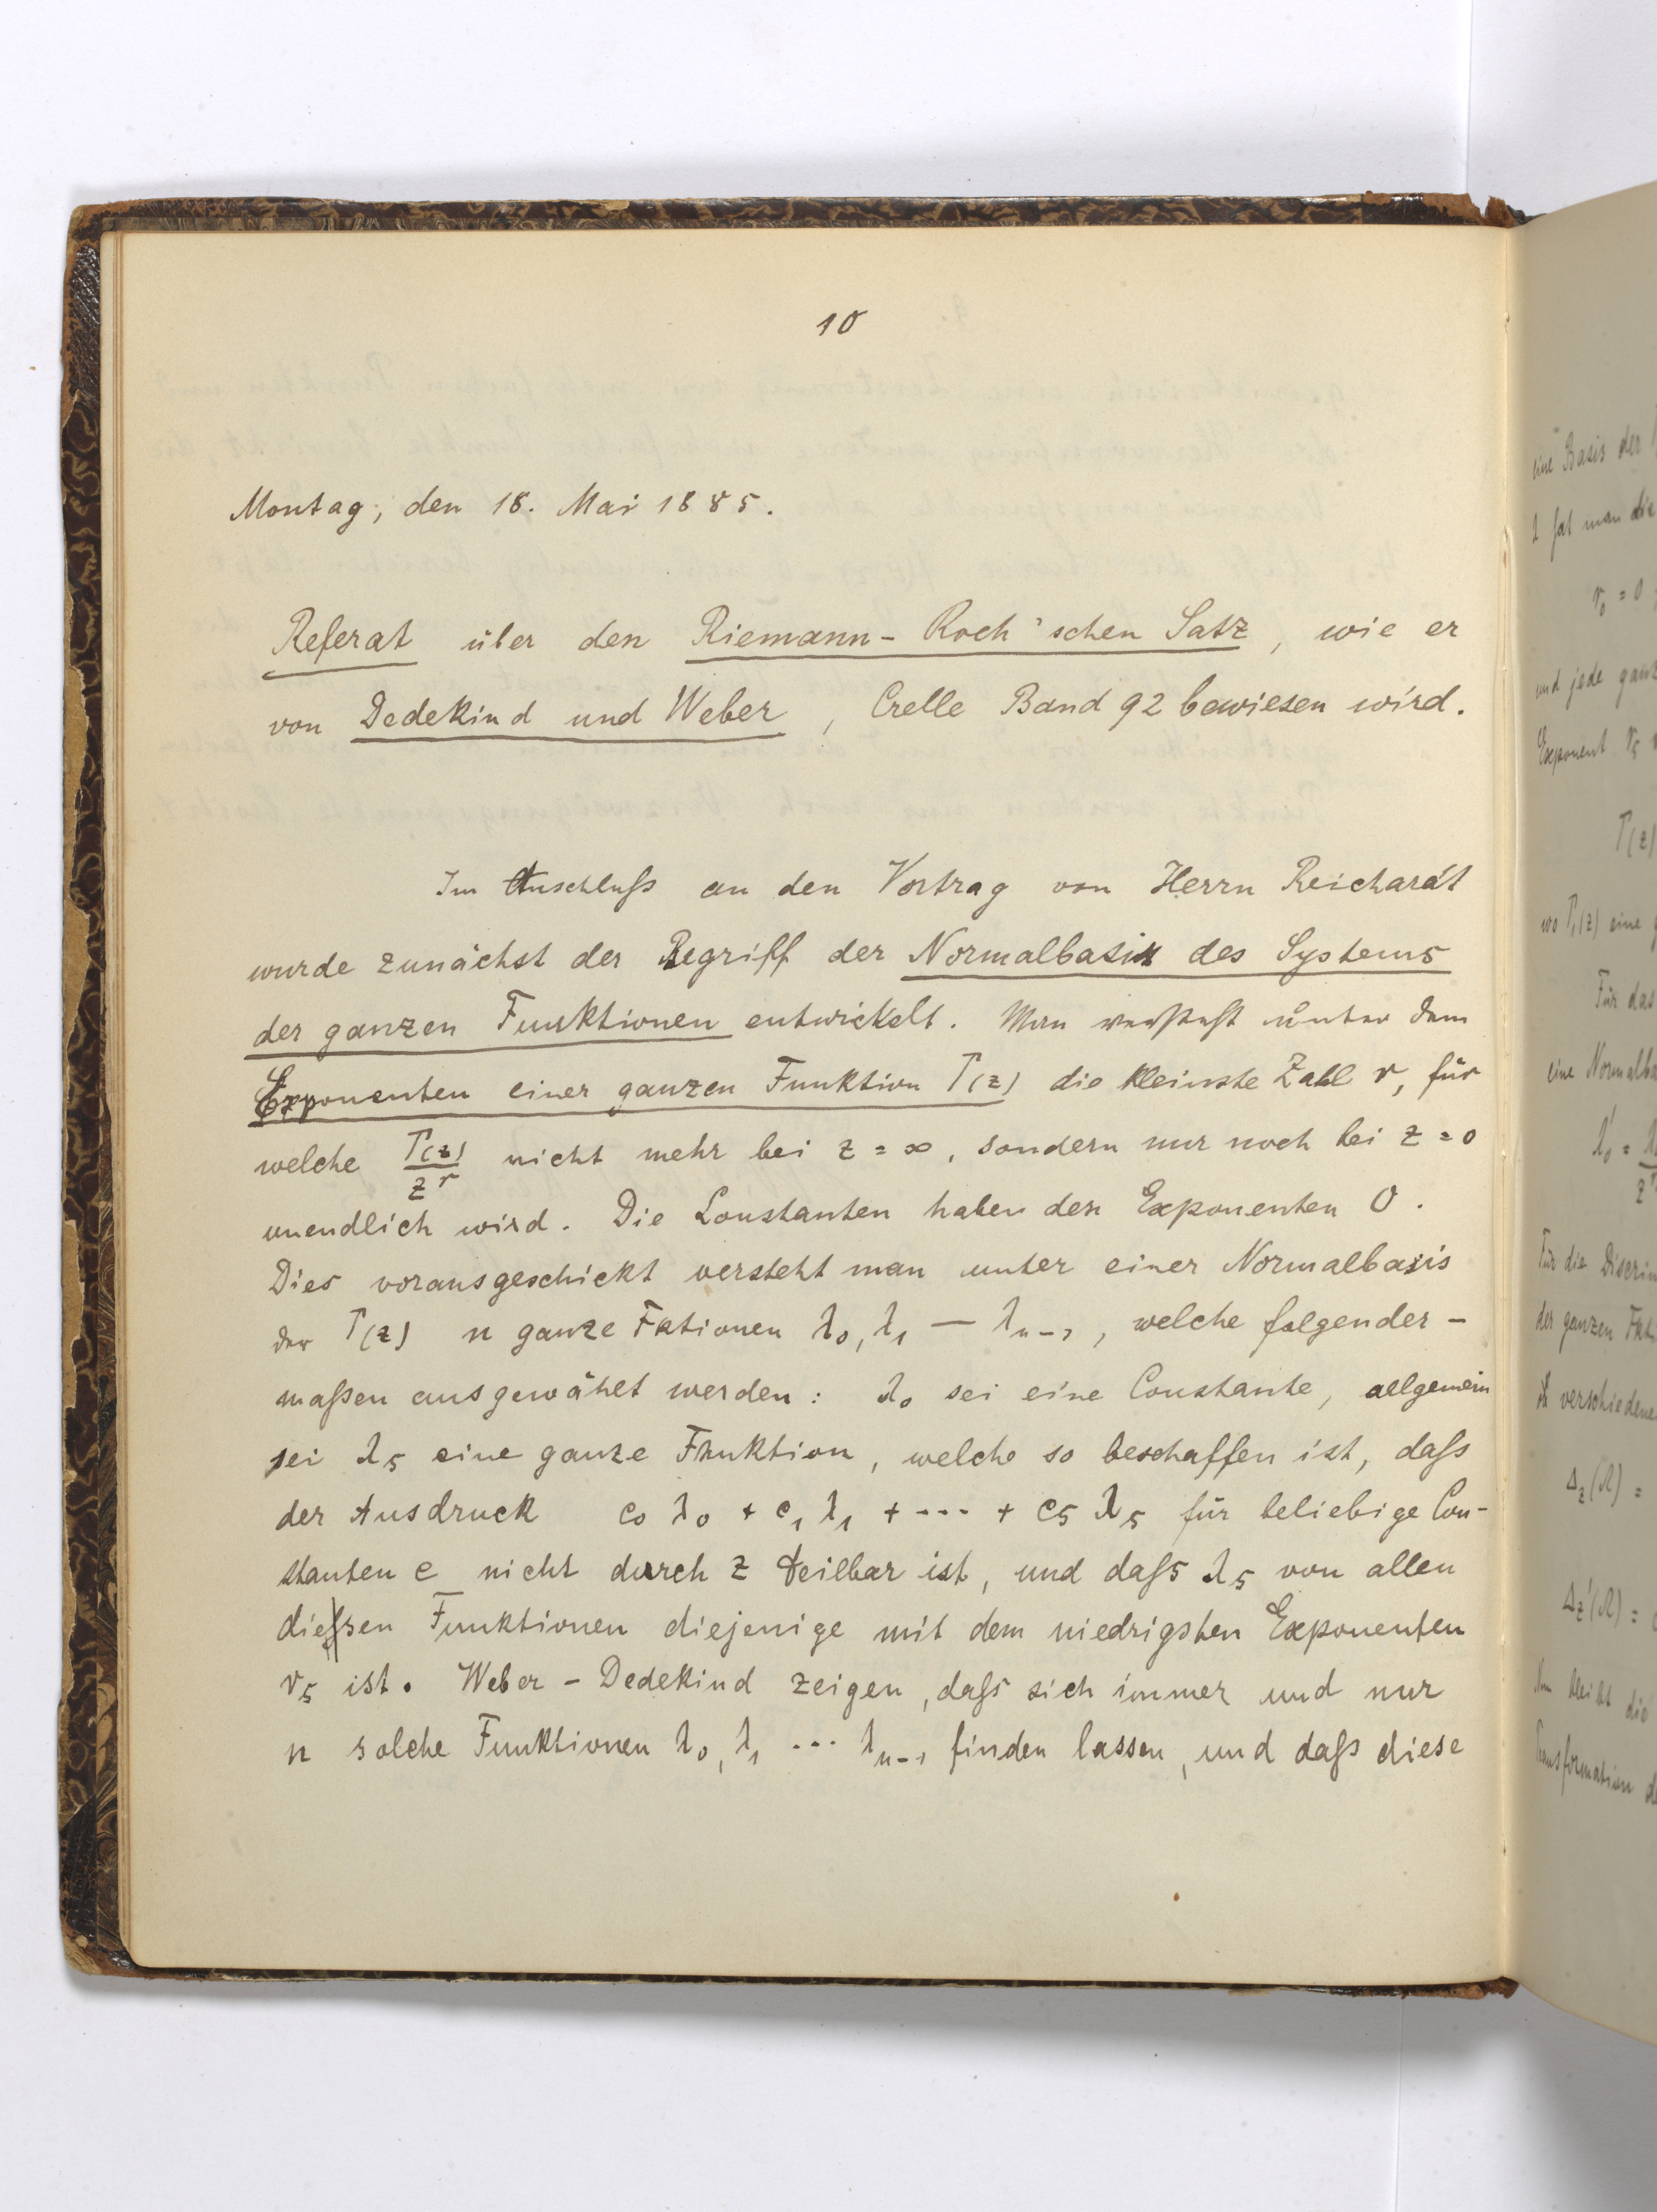 10
Montag, den 18. Mai 1885.
Referat über den Riemann-Roch'schen Satz, wie er
von Dedekind und Weber, Crelle Band 92 bewiesen wird.
Im Anschluß an den Vortrag von Herrn Reichardt
wurde zunächst der Begriff der Normalbasis des Systems
der ganzen Funktionen entwickelt. Man versteht unter dem
Exponenten einer ganzen Funktion Γ(z) die kleinste Zahl r, für
welche Γ(z)/z^r nicht mehr bei z = ∞, sondern nur noch bei z = 0
unendlich wird. Die Constanten haben den Exponenten 0.
Dies vorausgeschickt versteht man unter einer Normalbasis
der Γ(z) n ganze Fktionen λ₀, λ₁ — λₙ₋₁, welche folgender-
maßen ausgewählt werden: λ₀ sei eine Constante, allgemein
sei λₛ eine ganze Funktion, welche so beschaffen ist, daß
der Ausdruck c₀ λ₀ + c₁ λ₁ + --- + cₛ λₛ für beliebige Con-
stanten c nicht durch z teilbar ist, und daß λₛ von allen
diesen Funktionen diejenige mit dem niedrigsten Exponenten
rₛ ist. Weber - Dedekind zeigen, daß sich immer und nur
n solche Funktionen λ₀, λ₁ ... λₙ₋₁ finden lassen, und daß diese
eine Basis der
λ hat man die
r₀ = 0
und jede ganz
Exponent rₛ
Γ(z)
wo Γ₁(z) eine
Für das
eine Normalba
λ₀' =
Für die Discrim
der ganzen Fkt
verschiedene
Δz(Ω) =
Δz'(Ω) =
bleibt die
Transformation d